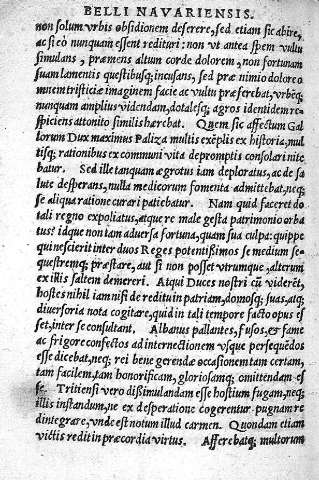 BELLI NAVARIENSIS.
non solum vrbis obsidionem deserere, sed etiam sic abire,
ac si eò nunquam essent redituri: non vt antea spem vultu
simulans, præmens altum corde dolorem, non fortunam
suam lamentis questibusq; incusans, sed præ nimio dolore o
mnem tristitiæ imaginem facie ac vultu præferebat, vrbēq;
nunquam amplius videndam, dotalesq; agros identidem re-
spiciens attonito similis hærebat. Quem sic affectum Gal
lorum Dux maximus Paliza multis exēplis ex historia, mul
tisq; rationibus ex communi vita depromptis consolari nite
batur. Sed ille tanquam ægrotus iam deploratus, ac de sa
lute desperans, nulla medicorum fomenta admittebat, neq;
se aliqua ratione curari patiebatur. Nam quid faceret do
tali regno expoliatus, atque re male gesta patrimonio orba
tus? idque non tam aduersa fortuna, quam sua culpa: quippe
qui nescierit inter duos Reges potentissimos se medium se-
questremq; præstare, aut si non posset vtrumque, alterum
ex illis saltem demereri. Atqui Duces nostri cū viderēt,
hostes nihil iam nisi de reditu in patriam, domosq; suas, atq;
diuersoria nota cogitare, quid in tali tempore facto opus es
set, inter se consultant. Albanus pallantes, fusos, et fame
ac frigore confectos ad internectionem vsque persequēdos
esse dicebat, neq; rei bene gerendæ occasionem tam certam,
tam facilem, tam honorificam, gloriosamq; omittendam es
se. Tritiensi vero dissimulandam esse hostium fugam, neq;
illis instandum, ne ex desperatione cogerentur pugnam re
dintegrare, vnde est notum illud carmen. Quondam etiam
victis redit in præcordia virtus. Afferebatq; multorum